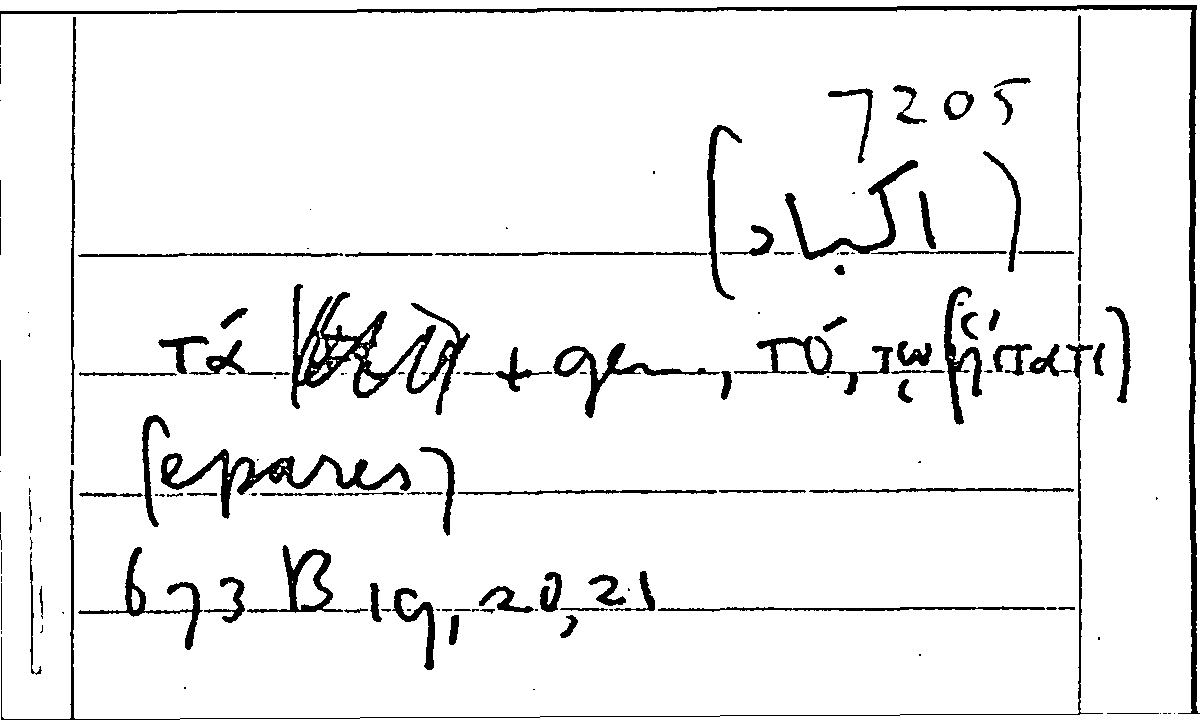 7205
τά + gen., τό, τῷ (ἥπατι)
(epares)
673 B 19, 20, 21